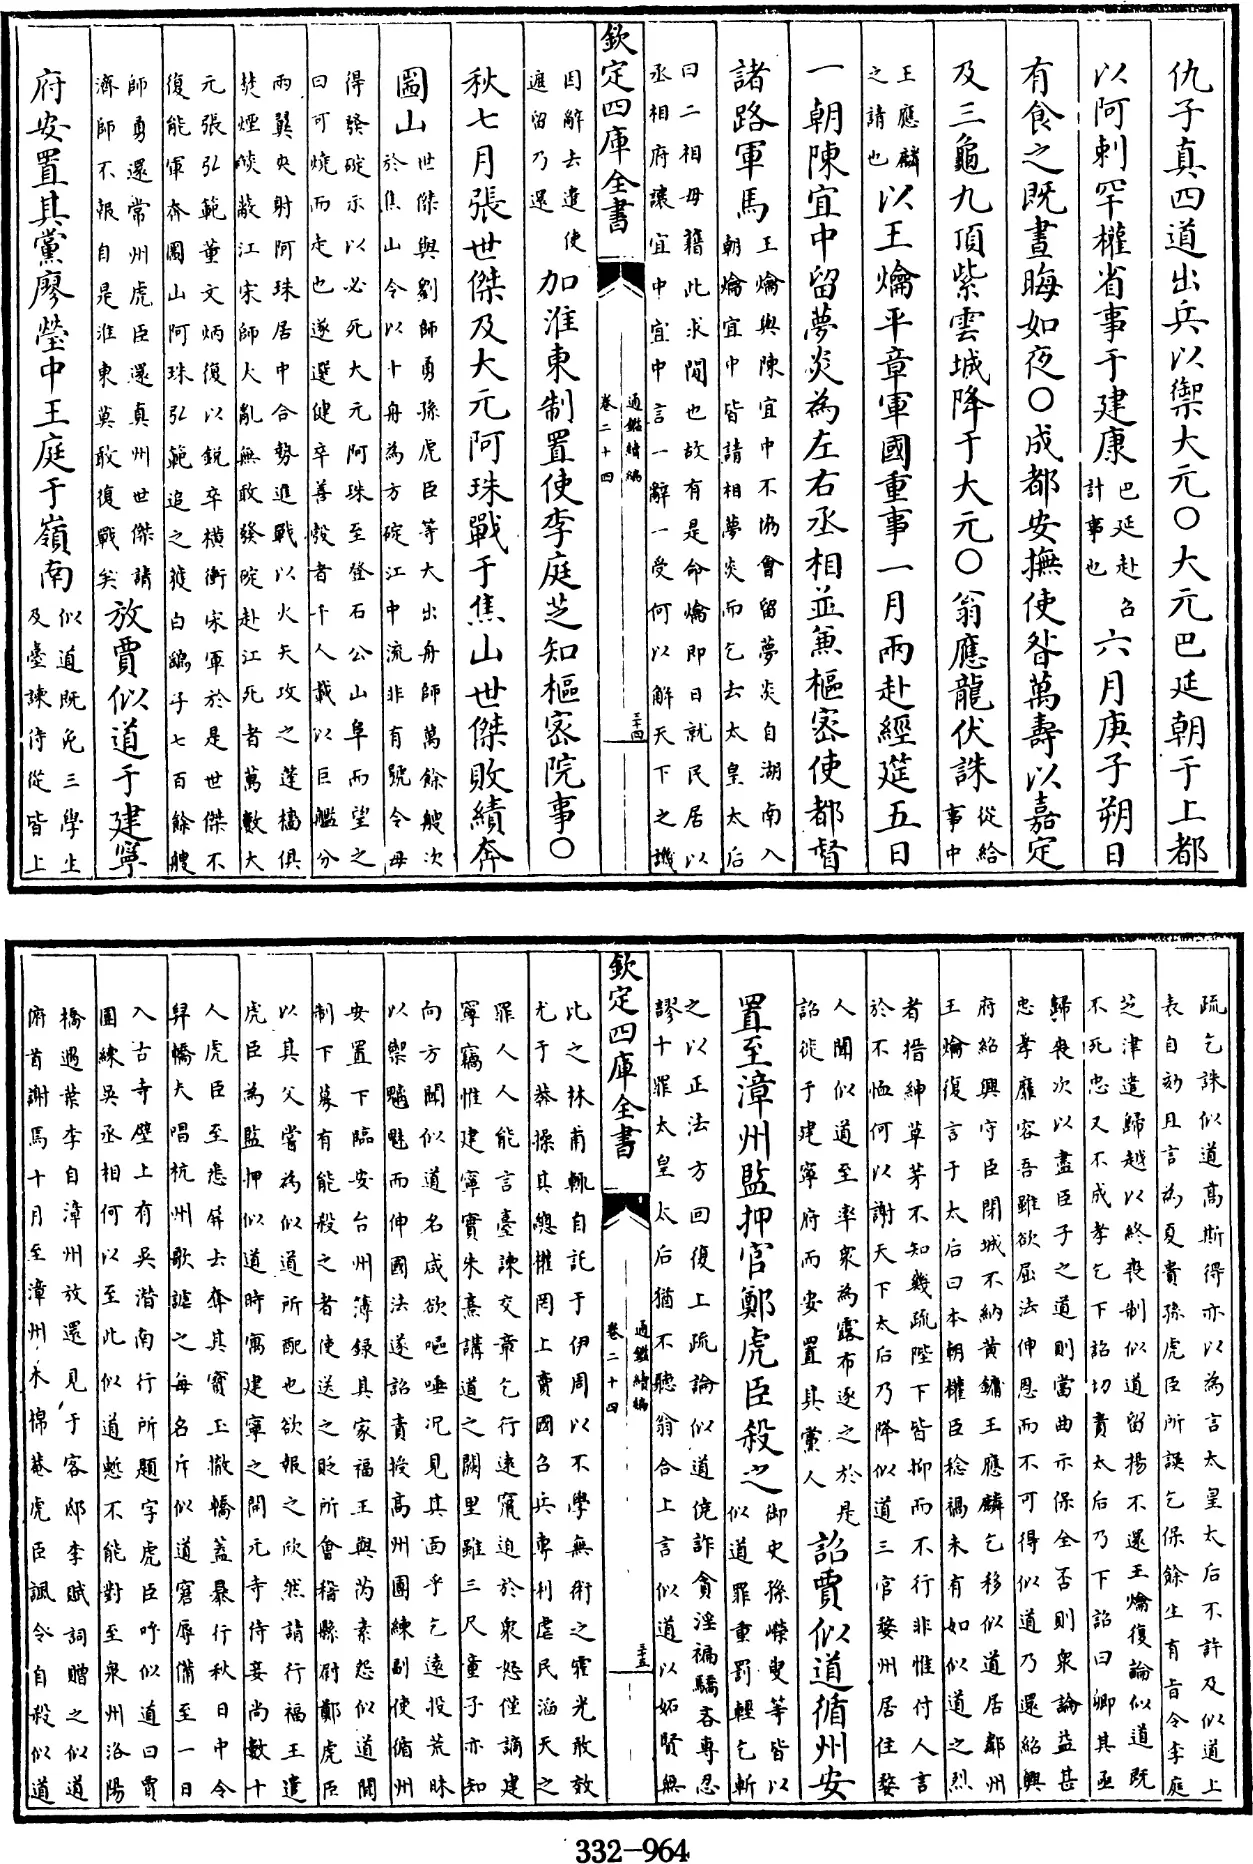 仇子真四道出兵以禦大元〇大元巴延朝于上都
以阿剌罕權省事于建康巴延赴召
計事也六月庚子朔日
有食之既晝晦如夜〇成都安撫使昝萬壽以嘉定
及三龜九頂紫雲城降于大元〇翁應龍伏誅從給
事中
王應麟
之請也以王爚平章軍國重事一月兩赴經筵五日
一朝陳宜中留夢炎為左右丞相並兼樞密使都督
諸路軍馬王爚與陳宜中不協會留夢炎自湖南入
朝爚宜中皆請相夢炎而乞去太皇太后
曰二相毋籍此求間也故有是命爚即日就民居以
丞相府讓宜中宜中言一辭一受何以解天下之譏
欽定四庫全書
通鑑續編
卷二十四
三十四
因解去遣使
遮留乃還加淮東制置使李庭芝知樞密院事〇
秋七月張世傑及大元阿珠戰于焦山世傑敗績奔
圌山世傑與劉師勇孫虎臣等大出舟師萬餘艘次
於焦山令以十舟為方碇江中流非有號令毋
得發碇示以必死大元阿珠至登石公山阜而望之
曰可燒而走也遂選健卒善彀者千人載以巨艦分
兩翼夾射阿珠居中合勢進戰以火矢攻之蓬檣俱
焚煙燄蔽江宋師大亂無敢發碇赴江死者萬數大
元張弘範董文炳復以銳卒橫衝宋軍於是世傑不
復能軍奔圌山阿珠弘範追之獲白鷂子七百餘艘
師勇還常州虎臣還真州世傑請
濟師不報自是淮東莫敢復戰矣放賈似道于建寧
府安置其黨廖瑩中王庭于嶺南似道既免三學生
及臺諫侍從皆上
疏乞誅似道高斯得亦以為言太皇太后不許及似道上
表自劾且言為夏貴孫虎臣所誤乞保餘生有旨令李庭
芝津遣歸越以終喪制似道留揚不還王爚復論似道既
不死忠又不成孝乞下詔切責太后乃下詔曰卿其亟
歸喪次以盡臣子之道則當曲示保全否則衆論益甚
忠孝靡容吾雖欲屈法伸恩而不可得似道乃還紹興
府紹興守臣閉城不納黃鏞王應麟乞移似道居鄰州
王爚復言于太后曰本朝權臣稔禍未有如似道之烈
者搢紳草茅不知幾疏陛下皆抑而不行非惟付人言
於不恤何以謝天下太后乃降似道三官婺州居住婺
人聞似道至率衆為露布逐之於是
詔徙于建寧府而安置其黨人詔賈似道循州安
置至漳州監押官鄭虎臣殺之御史孫嶸叟等皆以
似道罪重罰輕乞斬
之以正法方回復上疏論似道僥詐貪淫褊驕吝專忍
謬十罪太皇太后猶不聽翁合上言似道以妬賢無
欽定四庫全書
通鑑續編
卷二十四
三十五
比之林甫輒自託于伊周以不學無術之霍光敢效
尤于莽操其總權罔上賣國召兵專利虐民滔天之
罪人人能言臺諫交章乞行遠竄迫於衆怒僅謫建
寧竊惟建寧實朱熹講道之闕里雖三尺童子亦知
向方聞似道名咸欲嘔唾况見其面乎乞遠投荒昧
以禦魑魅而伸國法遂詔責授高州團練副使循州
安置下臨安台州簿錄其家福王與芮素怨似道聞
制下募有能殺之者使送之貶所會稽縣尉鄭虎臣
以其父嘗為似道所配也欲報之欣然請行福王遣
虎臣為監押似道時寓建寧之開元寺侍妾尚數十
人虎臣至悉屏去奪其寶玉撤轎蓋暴行秋日中令
舁轎夫唱杭州歌謔之每名斥似道窘辱備至一日
入古寺壁上有吳潛南行所題字虎臣呼似道曰賈
團練吳丞相何以至此似道慙不能對至泉州洛陽
橋遇葉李自漳州放還見于客邸李賦詞贈之似道
俯首謝焉十月至漳州木棉菴虎臣諷令自殺似道
332-964